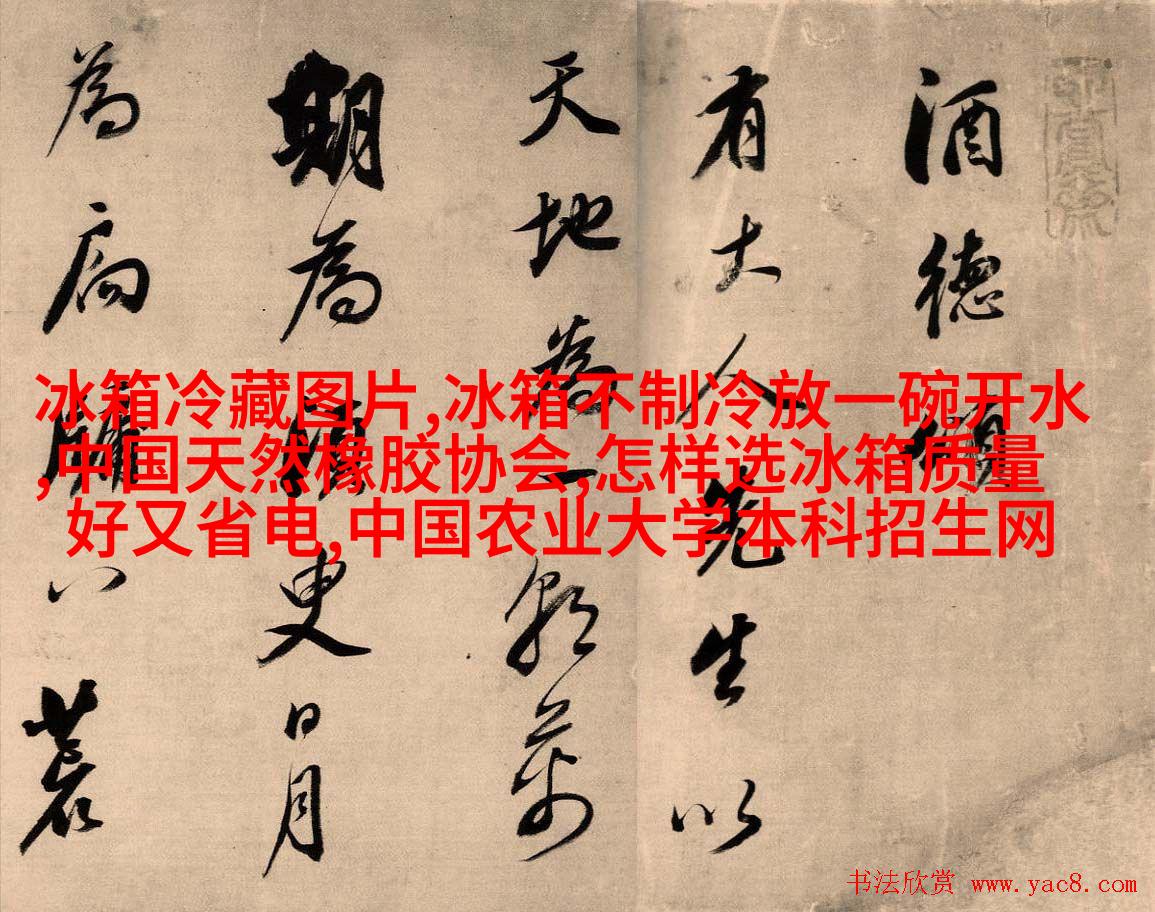 酒德頌
有大人先生以
天地為一朝萬
期為須臾日月
為扃牖八荒
冰箱冷藏图片,冰箱不制冷放一碗开水
,中国天然橡胶协会,怎样选冰箱质量
好又省电,中国农业大学本科招生网
书法欣赏 www.yac8.com